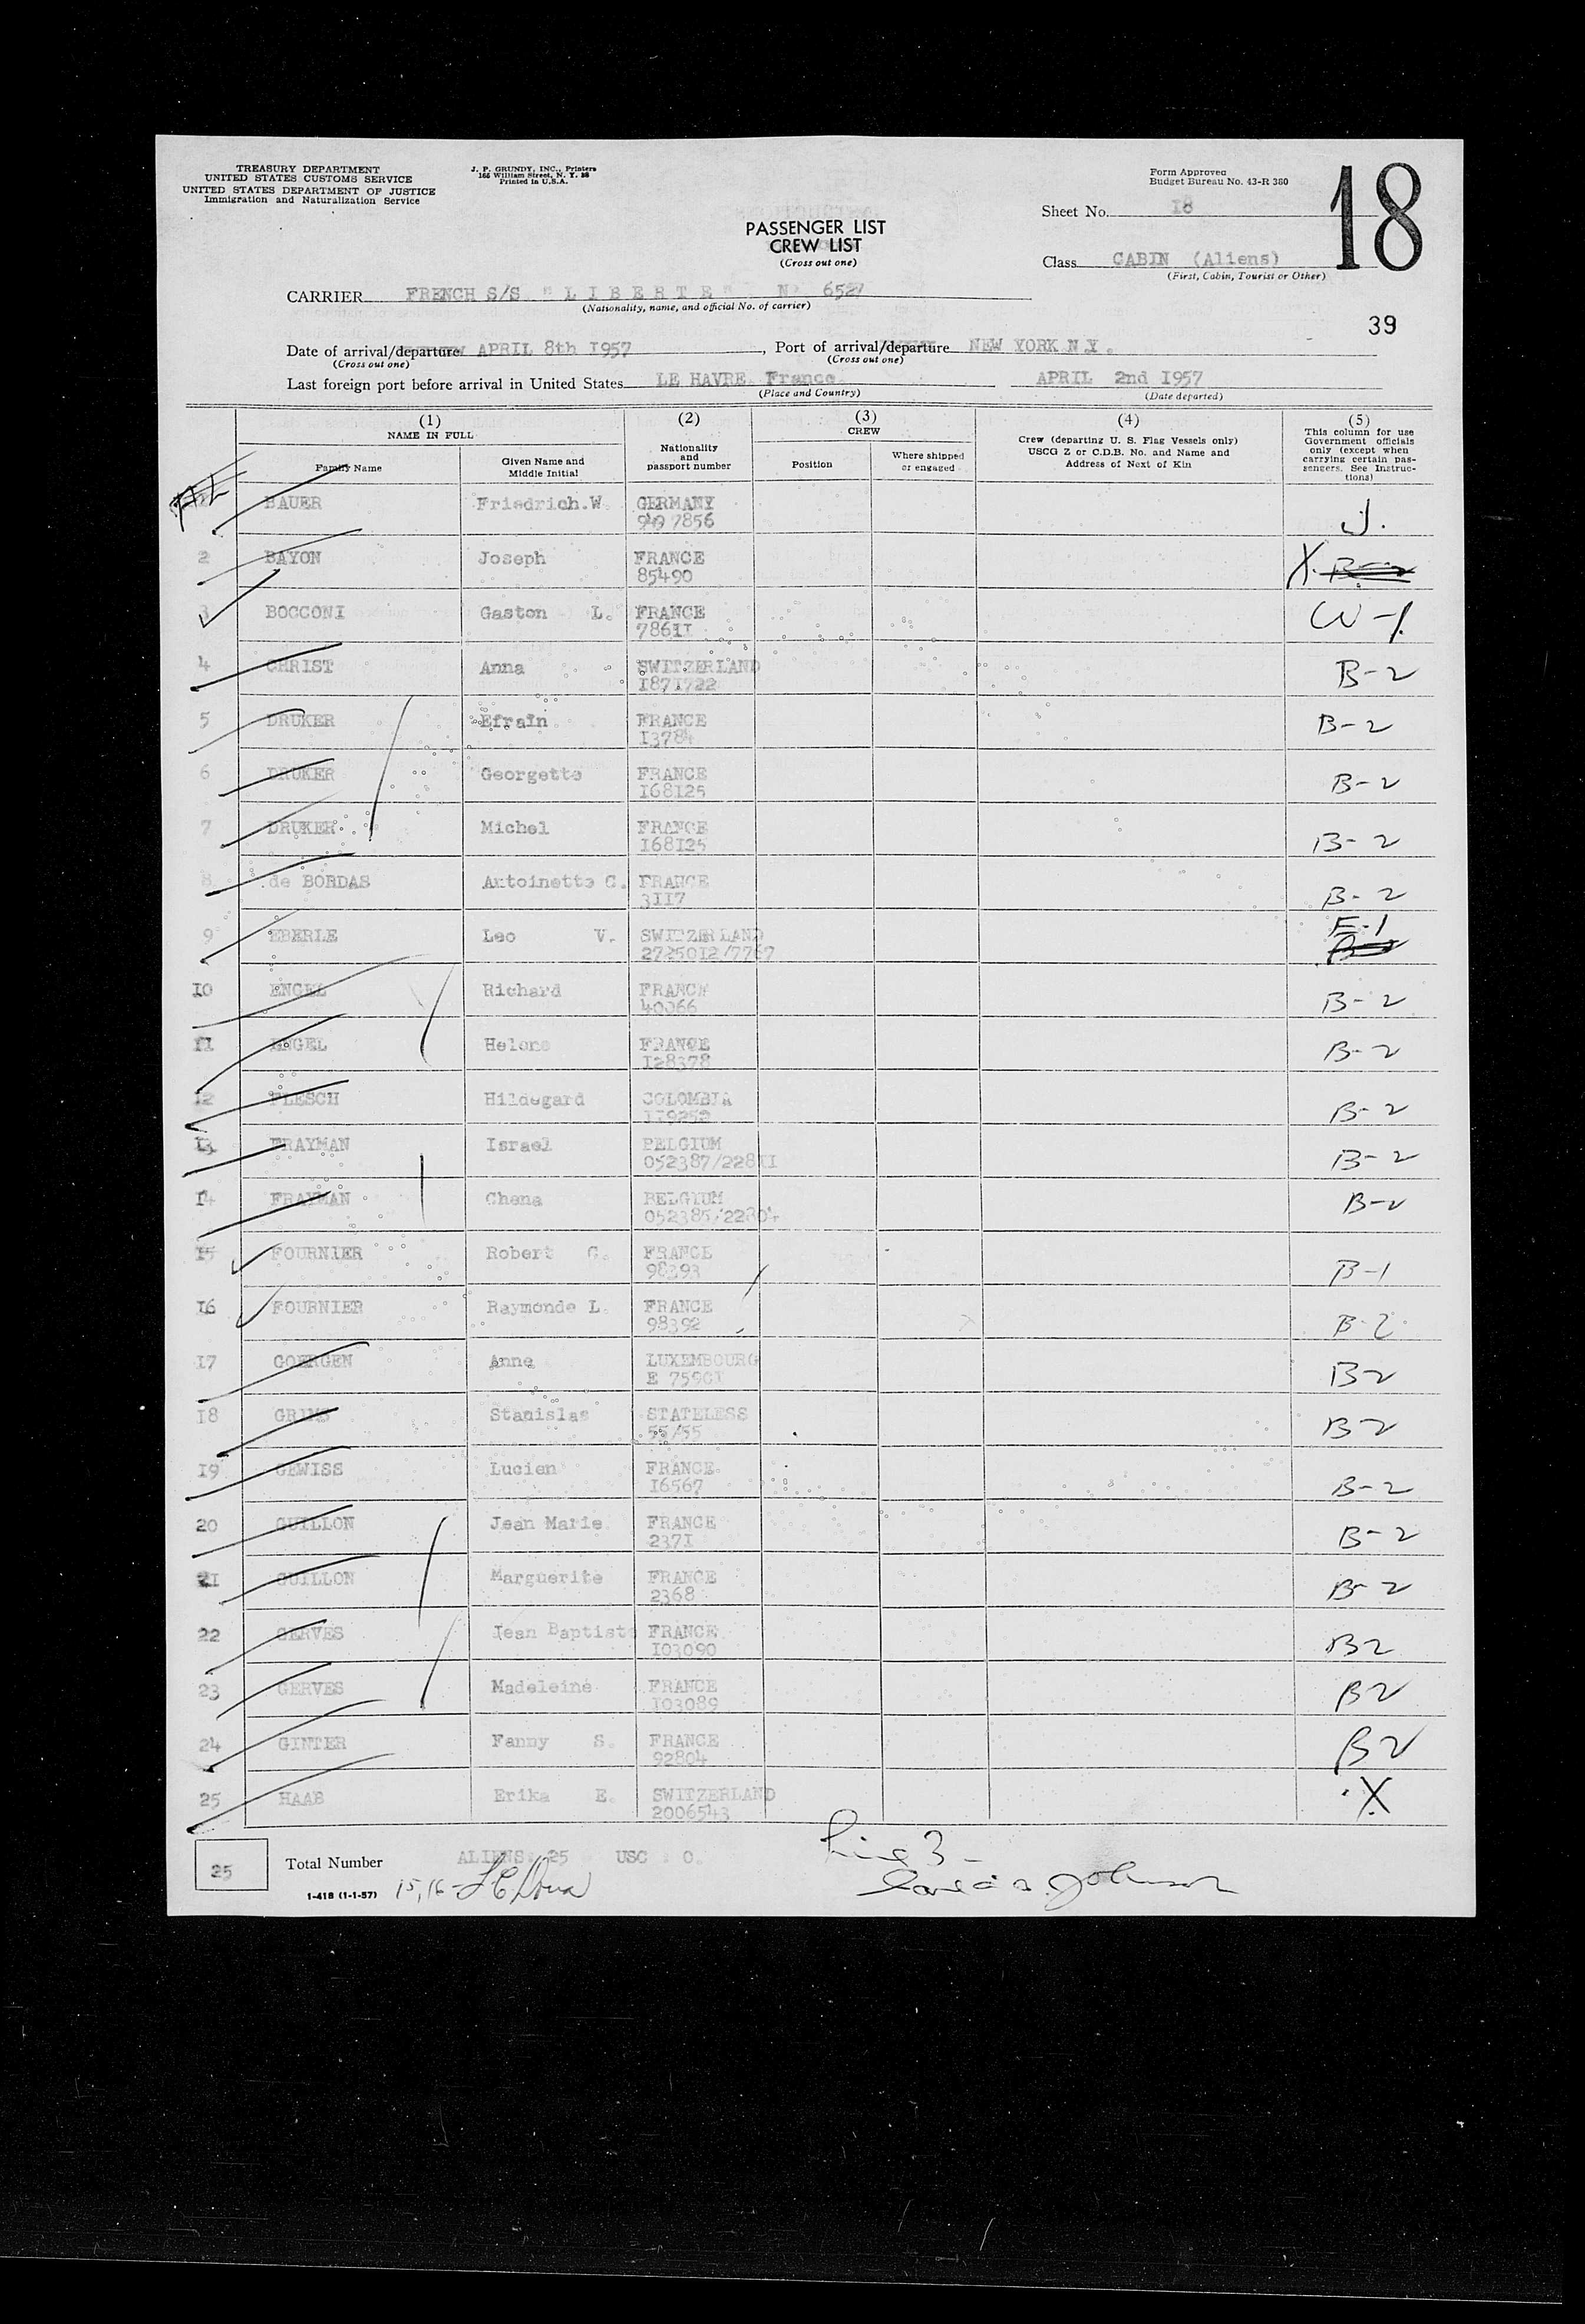 TREASURY DEPARTMENT
UNITED STATES CUSTOMS SERVICE
UNITED STATES DEPARTMENT OF JUSTICE
Immigration and Naturalization Service
J. P. GRUNDY, INC., Printers
166 William Street, N. Y. 38
Printed in U.S.A.
Form Approved
Budget Bureau No. 43-R 380
18
Sheet No. I8
PASSENGER LIST
CREW LIST
(Cross out one)
Class CABIN (Aliens)
(First, Cabin, Tourist or Other)
CARRIER FRENCH S/S "L I B E R T E" N° 652
(Nationality, name, and official No. of carrier)
39
Date of arrival/departure APRIL 8th I957, Port of arrival/departure NEW YORK N.Y.
(Cross out one) (Cross out one)
Last foreign port before arrival in United States LE HAVRE France APRIL 2nd I957
(Place and Country) (Date departed)
(1) (2) (3) (4) (5)
NAME IN FULL
Family Name
Given Name and Middle Initial
Nationality and passport number
CREW
Position
Where shipped or engaged
Crew (departing U. S. Flag Vessels only)
USCG Z or C.D.B. No. and Name and
Address of Next of Kin
This column for use
Government officials
only (except when
carrying certain pas-
sengers. See Instruc-
tions)
BAUER Friedrich.W. GERMANY J.
949 7856
2 BAYON Joseph FRANCE X. B-2
85490
3 BOCCONI Gaston L. FRANCE W-1
786II
4 CHRIST Anna SWITZERLAND B-2
I87I722
5 DRUKER Efraïn FRANCE B-2
I3784
6 DRUKER Georgette FRANCE B-2
I68I25
7 DRUKER Michel FRANCE B-2
I68I25
8 de BORDAS Antoinette C. FRANCE B-2
3II7
9 EBERLE Leo V. SWITZERLAND E-1
27250I2/7767
I0 ENGEL Richard FRANCE B-2
40066
II ENGEL Helene FRANCE B-2
I28378
I2 FLESCH Hildegard COLOMBIA B-2
I79252
I3 FRAYMAN Israel BELGIUM B-2
052387/228II
I4 FRAYMAN Chana BELGIUM B-2
052385/22804
I5 FOURNIER Robert G. FRANCE B-1
98393
I6 FOURNIER Raymonde L. FRANCE B-2
98392
I7 GOERGEN Anne LUXEMBOURG B2
E 7590I
I8 Stanislas STATELESS B2
55/55
I9 GEWISS Lucien FRANCE B-2
I6567
20 GUILLON Jean Marie FRANCE B-2
237I
2I GUILLON Marguerite FRANCE B-2
2368
22 GERVES Jean Baptiste FRANCE B2
I03090
23 GERVES Madeleine FRANCE B2
I03089
24 GINTER Fanny S. FRANCE B2
92804
25 HAAB Erika E. SWITZERLAND X
2006543
25 Total Number ALIENS: 25 USC : 0.
Line 3 -
I-418 (1-1-57) 15,16-
Johnson